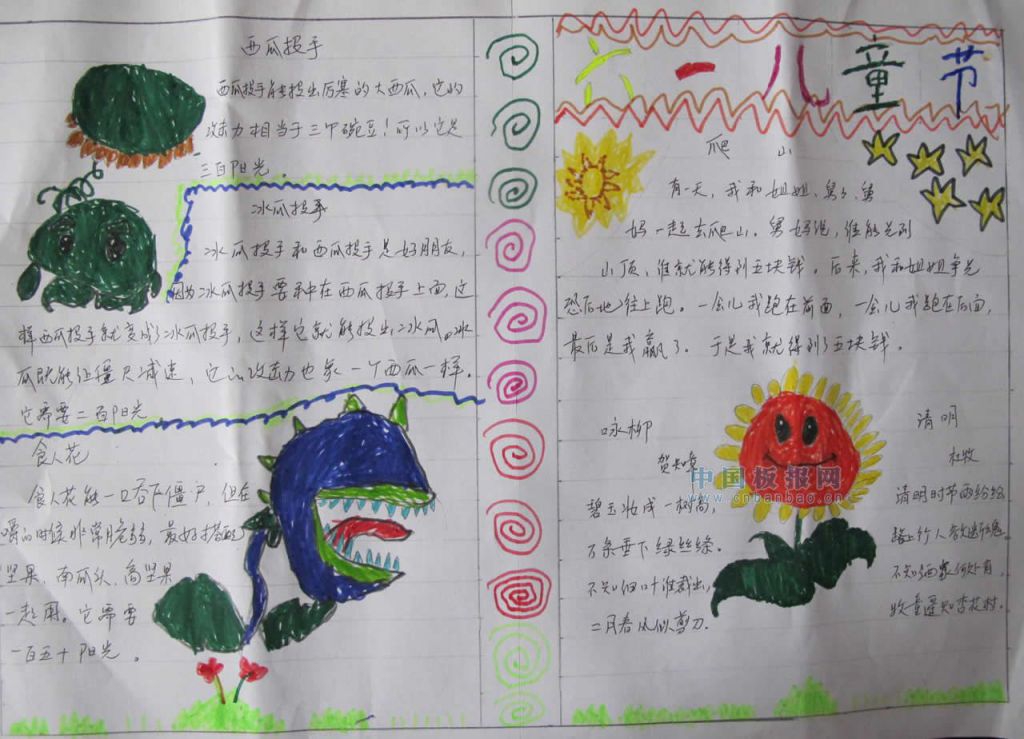 西瓜投手
西瓜投手能投出厉害的大西瓜，它的
攻击力相当于三个豌豆！可以它是
三百阳光。
冰瓜投手
冰瓜投手和西瓜投手是好朋友，
因为冰瓜投手要种在西瓜投手上面，这
样西瓜投手就变成了冰瓜投手，这样它就能投出冰瓜。冰
瓜既能让僵尸减速，它的攻击力也象一个西瓜一样。
它需要二百阳光
食人花
食人花能一口吞下僵尸，但在
嚼的时候非常脆弱，最好搭配
坚果、南瓜头、高坚果
一起用。它需要
一百五十阳光。
六一儿童节
爬山
有一天，我和姐姐、舅舅、舅
妈一起去爬山。舅妈说，谁能先到
山顶，谁就能得到五块钱。后来，我和姐姐争先
恐后地往上跑。一会儿我跑在前面，一会儿我跑在后面，
最后是我赢了。于是我就得到了五块钱。
咏柳
贺知章
碧玉妆成一树高，
万条垂下绿丝绦。
不知细叶谁裁出，
二月春风似剪刀.
清明
杜牧
清明时节雨纷纷
路上行人欲断魂
不知酒家何处有，
牧童遥知杏花村.
中国板报网
www.cnbanbao.cn